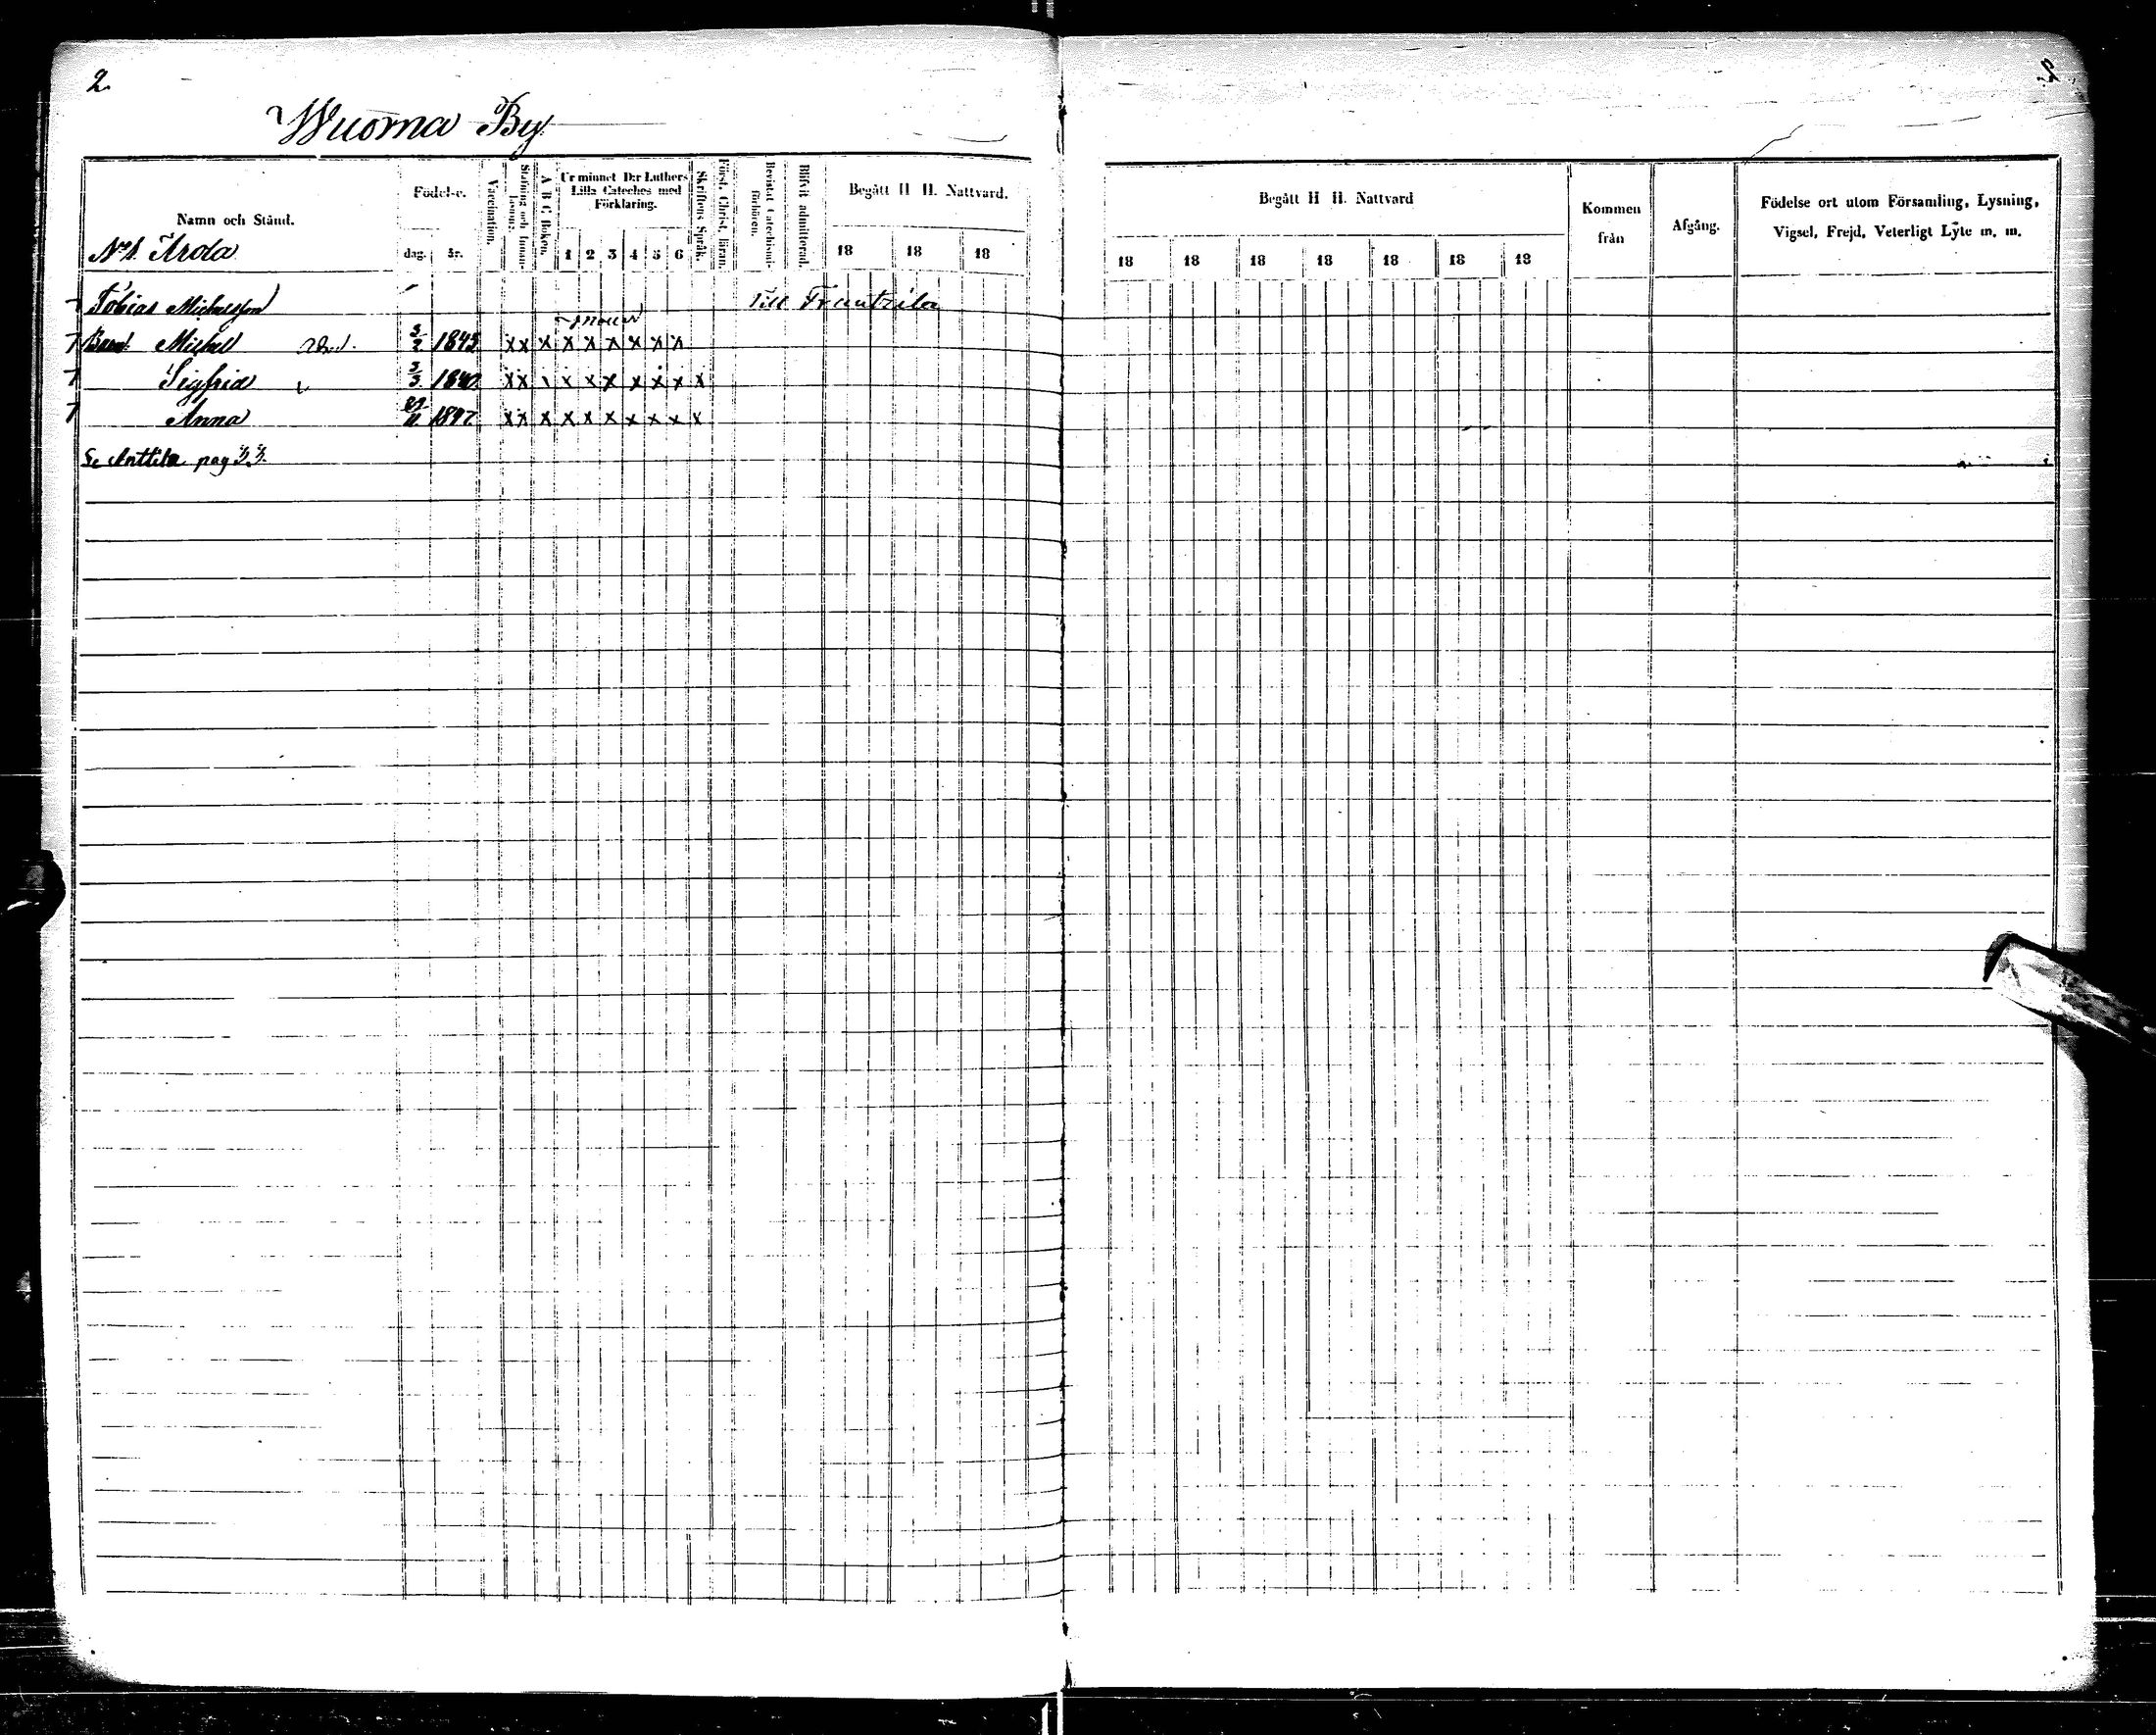 2.
2
Wuoma By.
Namn och Stånd.
Födelse.
dag.
år.
Vaccination.
Stafning och Innanläsning.
A B C Boken.
Ur minnet D:r Luthers Lilla Cateches med Förklaring.
1 2 3 4 5 6
Skriftens Språk.
Först. Christ. läran.
Bevistat Catechismi-förhören.
Blifvit admitterad.
Begått H H. Nattvard.
18 18 18
Begått H H. Nattvard
18 18 18 18 18 18 18
Kommen från
Afgång.
Födelse ort utom Församling, Lysning, Vigsel, Frejd, Veterligt Lyte m. m.
No 1. Arola
7 Tobias Michelsson Till Frantzila
7 Barn: Michel 3/2 1843 x x x x x x x x x
7 Sigfrid 3/3 1840 x x x x x x x x x
7 Anna 1847 x x x x x x x x x x
Se Anttila pag 33.